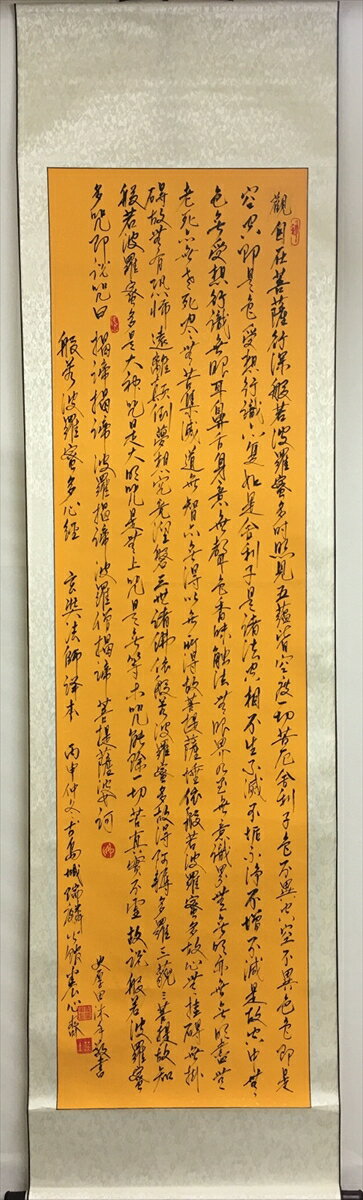 觀自在菩薩行深般若波羅蜜多時照見五蘊皆空度一切苦厄舍利子色不異空空不異色色即是
空空即是色受想行識亦复如是舍利子是諸法空相不生不滅不垢不净不增不減是故空中無
色無受想行識無眼耳鼻舌身意無聲色香味触法無眼界乃至無意識界無無明亦無無明盡無
老死亦無老死尽無苦集滅道無智亦無得以無所得故菩提薩埵依般若波羅蜜多故心無挂碍無掛
碍故無有恐怖遠離顛倒夢想究竟涅槃三世諸佛依般若波羅蜜多故得阿耨多羅三藐三菩提故知
般若波羅蜜多是大神咒是大明咒是無上咒是無等等咒能除一切苦真實不虛故説般若波羅蜜
多咒即説咒曰 揭諦揭諦 波羅揭諦 波羅僧揭諦 菩提薩婆訶
般若波羅蜜多心經 玄奘法師译本 丙申仲